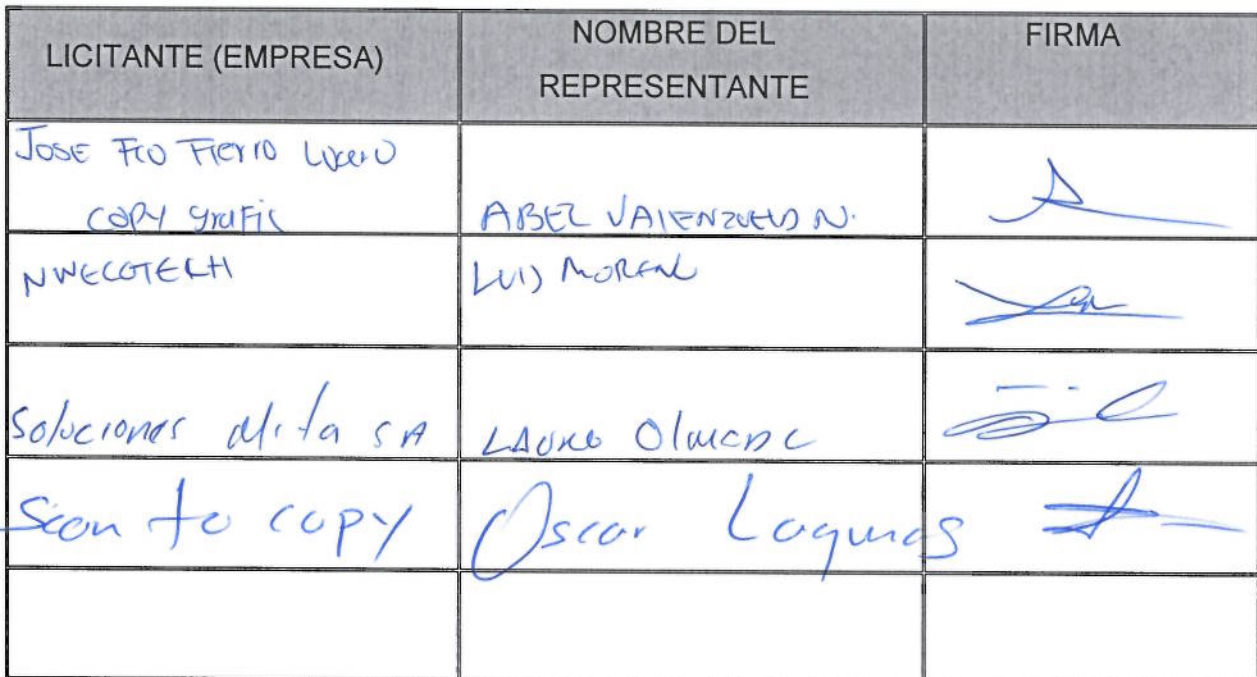 LICITANTE (EMPRESA)
NOMBRE DEL
REPRESENTANTE
FIRMA
JOSE FCO FIERRO LUCERO
COPY GRAFIC
ABEL VALENZUELA N.
NWECOTECH
LUIS MORENO
Soluciones Mita SA
LAURO Olmedo
Scan to copy
Oscar Lagunas